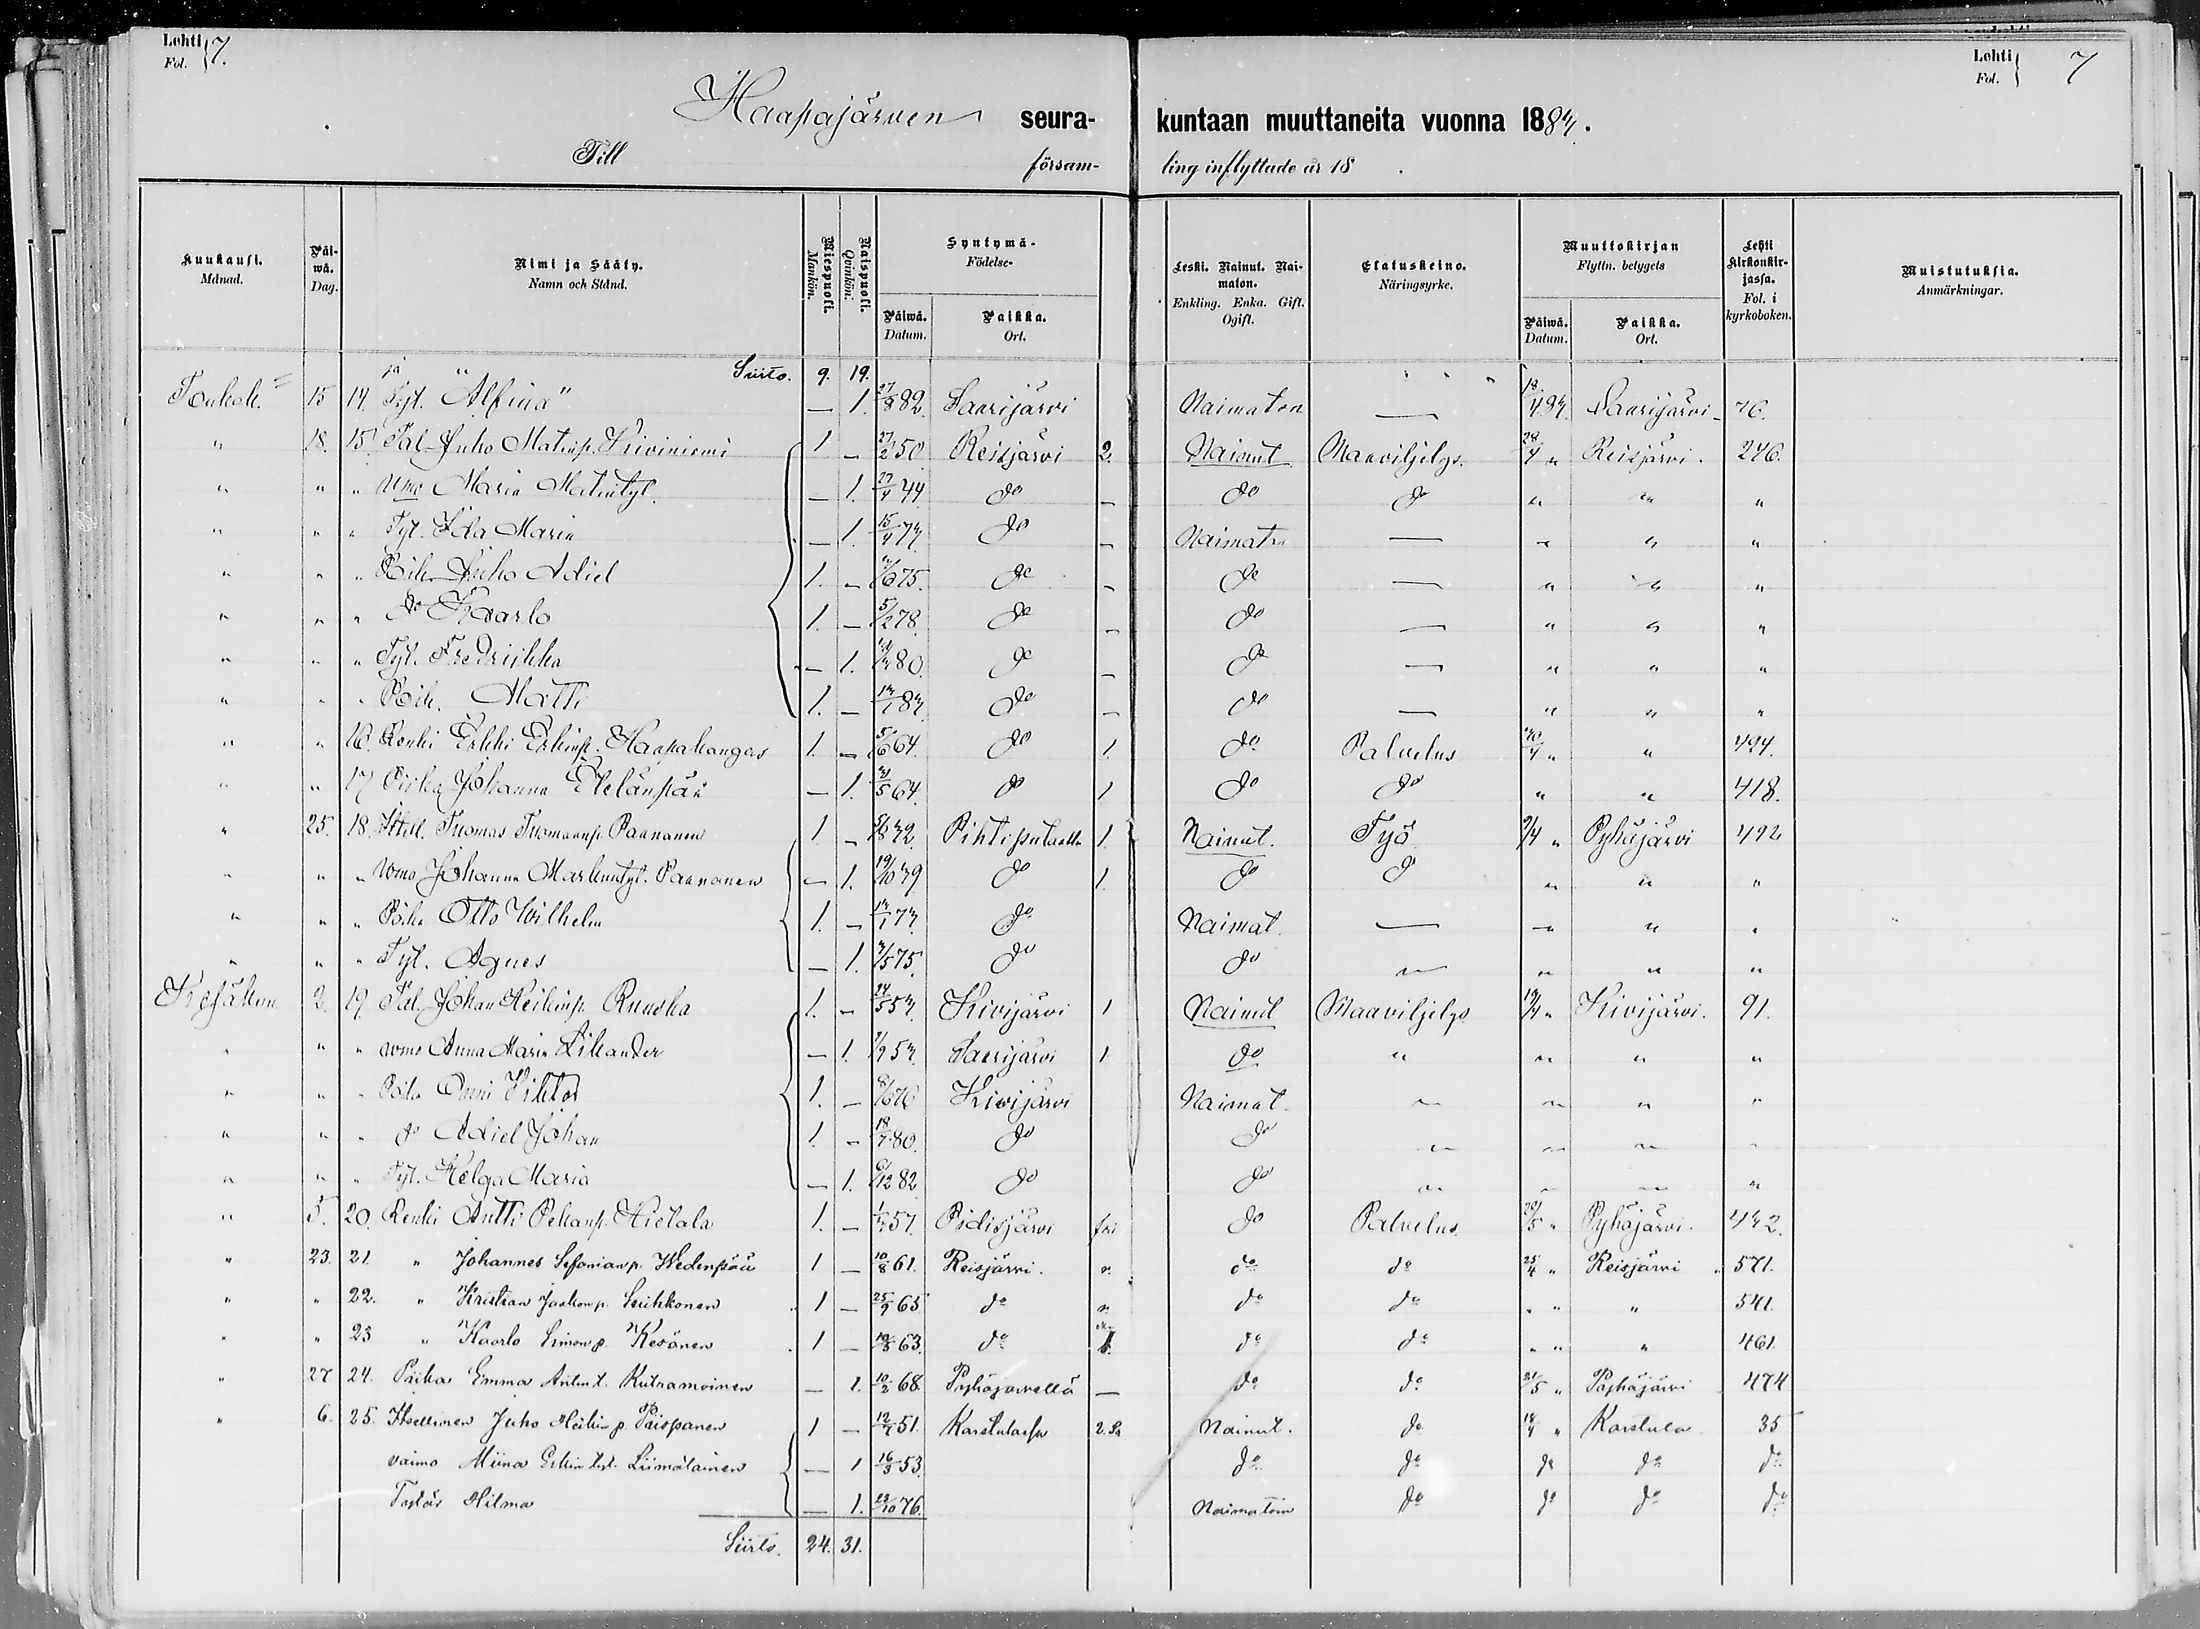 Lehti Fol. 7.
Lehti Fol. 7
Haapajärven seura- kuntaan muuttaneita vuonna 1883.
Till församling inflyttade år 18 .
Kuukausi. Månad. Päiwä. Dag. Nimi ja Sääty. Namn och Stånd. Miespuoli. Mankön. Naispuoli. Qvinkön. Syntymä- Födelse- Päiwä. Datum. Paikka. Ort. Leski. Nainut. Naimaton. Enkling. Enka. Gift. Ogift. Elatuskeino. Näringsyrke. Muuttokirjan Flyttn. betygets Päiwä. Datum. Paikka. Ort. Lehti kirkonkirjassa. Fol. i kyrkoboken. Muistutuksia. Anmärkningar.
Siirto. 9. 19.
Toukok. 15 14. Tyt. "Alfina" — 1. 27/8 82. Saarijärvi Naimaton — 18/4 83. Saarijärvi 76.
" 18. 15. Tal. Juho Matinp. Kiviniemi 1. — 27/2 50 Reisjärvi 2. Nainut Maaviljelys. 28/4 " Reisjärvi. 246.
" " " Vmo Maria Matintyt. — 1. 27/4 44 do — do do " " "
" " " Tyt. Ida Maria — 1. 15/4 73. do — Naimatn — " " "
" " " Poik. Juho Adiel 1. — 75. do — do — " " "
" " " do Kaarlo 1. — 5/2 78. do — do — " " "
" " " Tyt. Fredriikka — 1. 80. do — do — " " "
" " " Poik. Matti 1. — 13/1 83. do — do — " " "
" " 16. Renki Erkki Erkinp. Haapakangas 1. — 5/6 64. do 1. do Palvelus 30/4 " " 494.
" " 17 Piika Johanna Etelänpää — 1. 5 64. do 1 do do " " 418.
" 25. 18. Itsll. Tuomas Tuomaanp. Paananen 1. — 5/8 32. Pihtiputaalla 1. Nainut. Työ 9/4 " Pyhäjärvi 492
" " " Vmo Johanna Markuntyt. Paananen — 1. 19/10 39 do 1. do do " " "
" " " Poika Otto Wilhelm 1. — 13/1 73. do Naimat. — " " "
" " " Tyt. Agnes — 1. 3/5 75. do do " " " "
Kesäkuu 2. 19. Tal. Johan Heikinp. Ruuska 1. — 24/5 53. Kivijärvi 1 Nainut Maaviljelys 13/4 " Kivijärvi. 91.
" " " vmo Anna Maria Likander — 1. 7/9 53. Saarijärvi 1. do " " " "
" " " Poika Onni Viktor 1. — 8/6 76 Kivijärvi Naimat. " " " "
" " " do Adiel Johan 1. — 18/7 80. do do " " " "
" " " Tyt. Helga Maria — 1. 6/12 82 do do " " " "
" 5. 20. Renki Antti Pekanp. Hietala 1. — 57. Pidisjärvi fri do Palvelus. 29/5 " Pyhäjärvi. 432.
" 23. 21. " Johannes Sefanianp. Wedenpää 1 — 10/8 61. Reisjärvi. " do do 25/4 " Reisjärvi " 571.
" " 22. " Kristian Jaakonp. Leuhkonen 1 — 25/9 65 do " do do " " " 541.
" " 23 " Kaarlo Simonp. Kesänen 1 — 63. do do do " " " 461.
" 27 24. Piika Emma Antint. Kutramoinen — 1. 10/2 68 Pyhäjärvellä — do do 21/5 " Pyhäjärvi 474
" 6. 25. Itsellinen Juho Heikinp. Piispanen 1 — 12/7 51. Karstulassa Nainut. do 18/4 " Karstula 35
vaimo Miina Erkin tyt. Liimatainen — 1 16/3 53. do do do do do
Tytär Hilma — 1. 23/10 76. Naimatoin do do do do
Siirto. 24. 31.